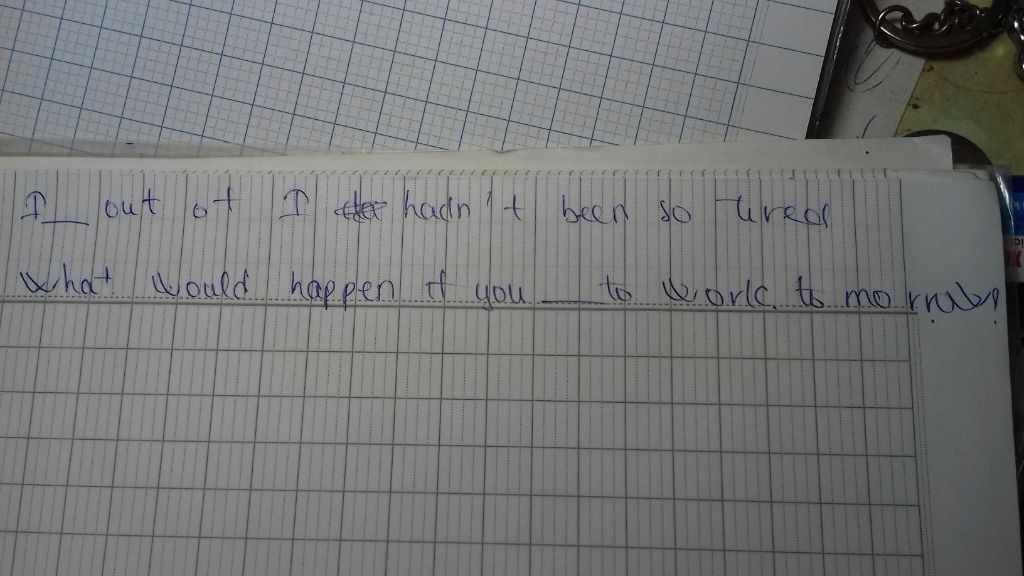 I __ out of I hadn't been so tired
What would happen if you ___ to work to morrow?